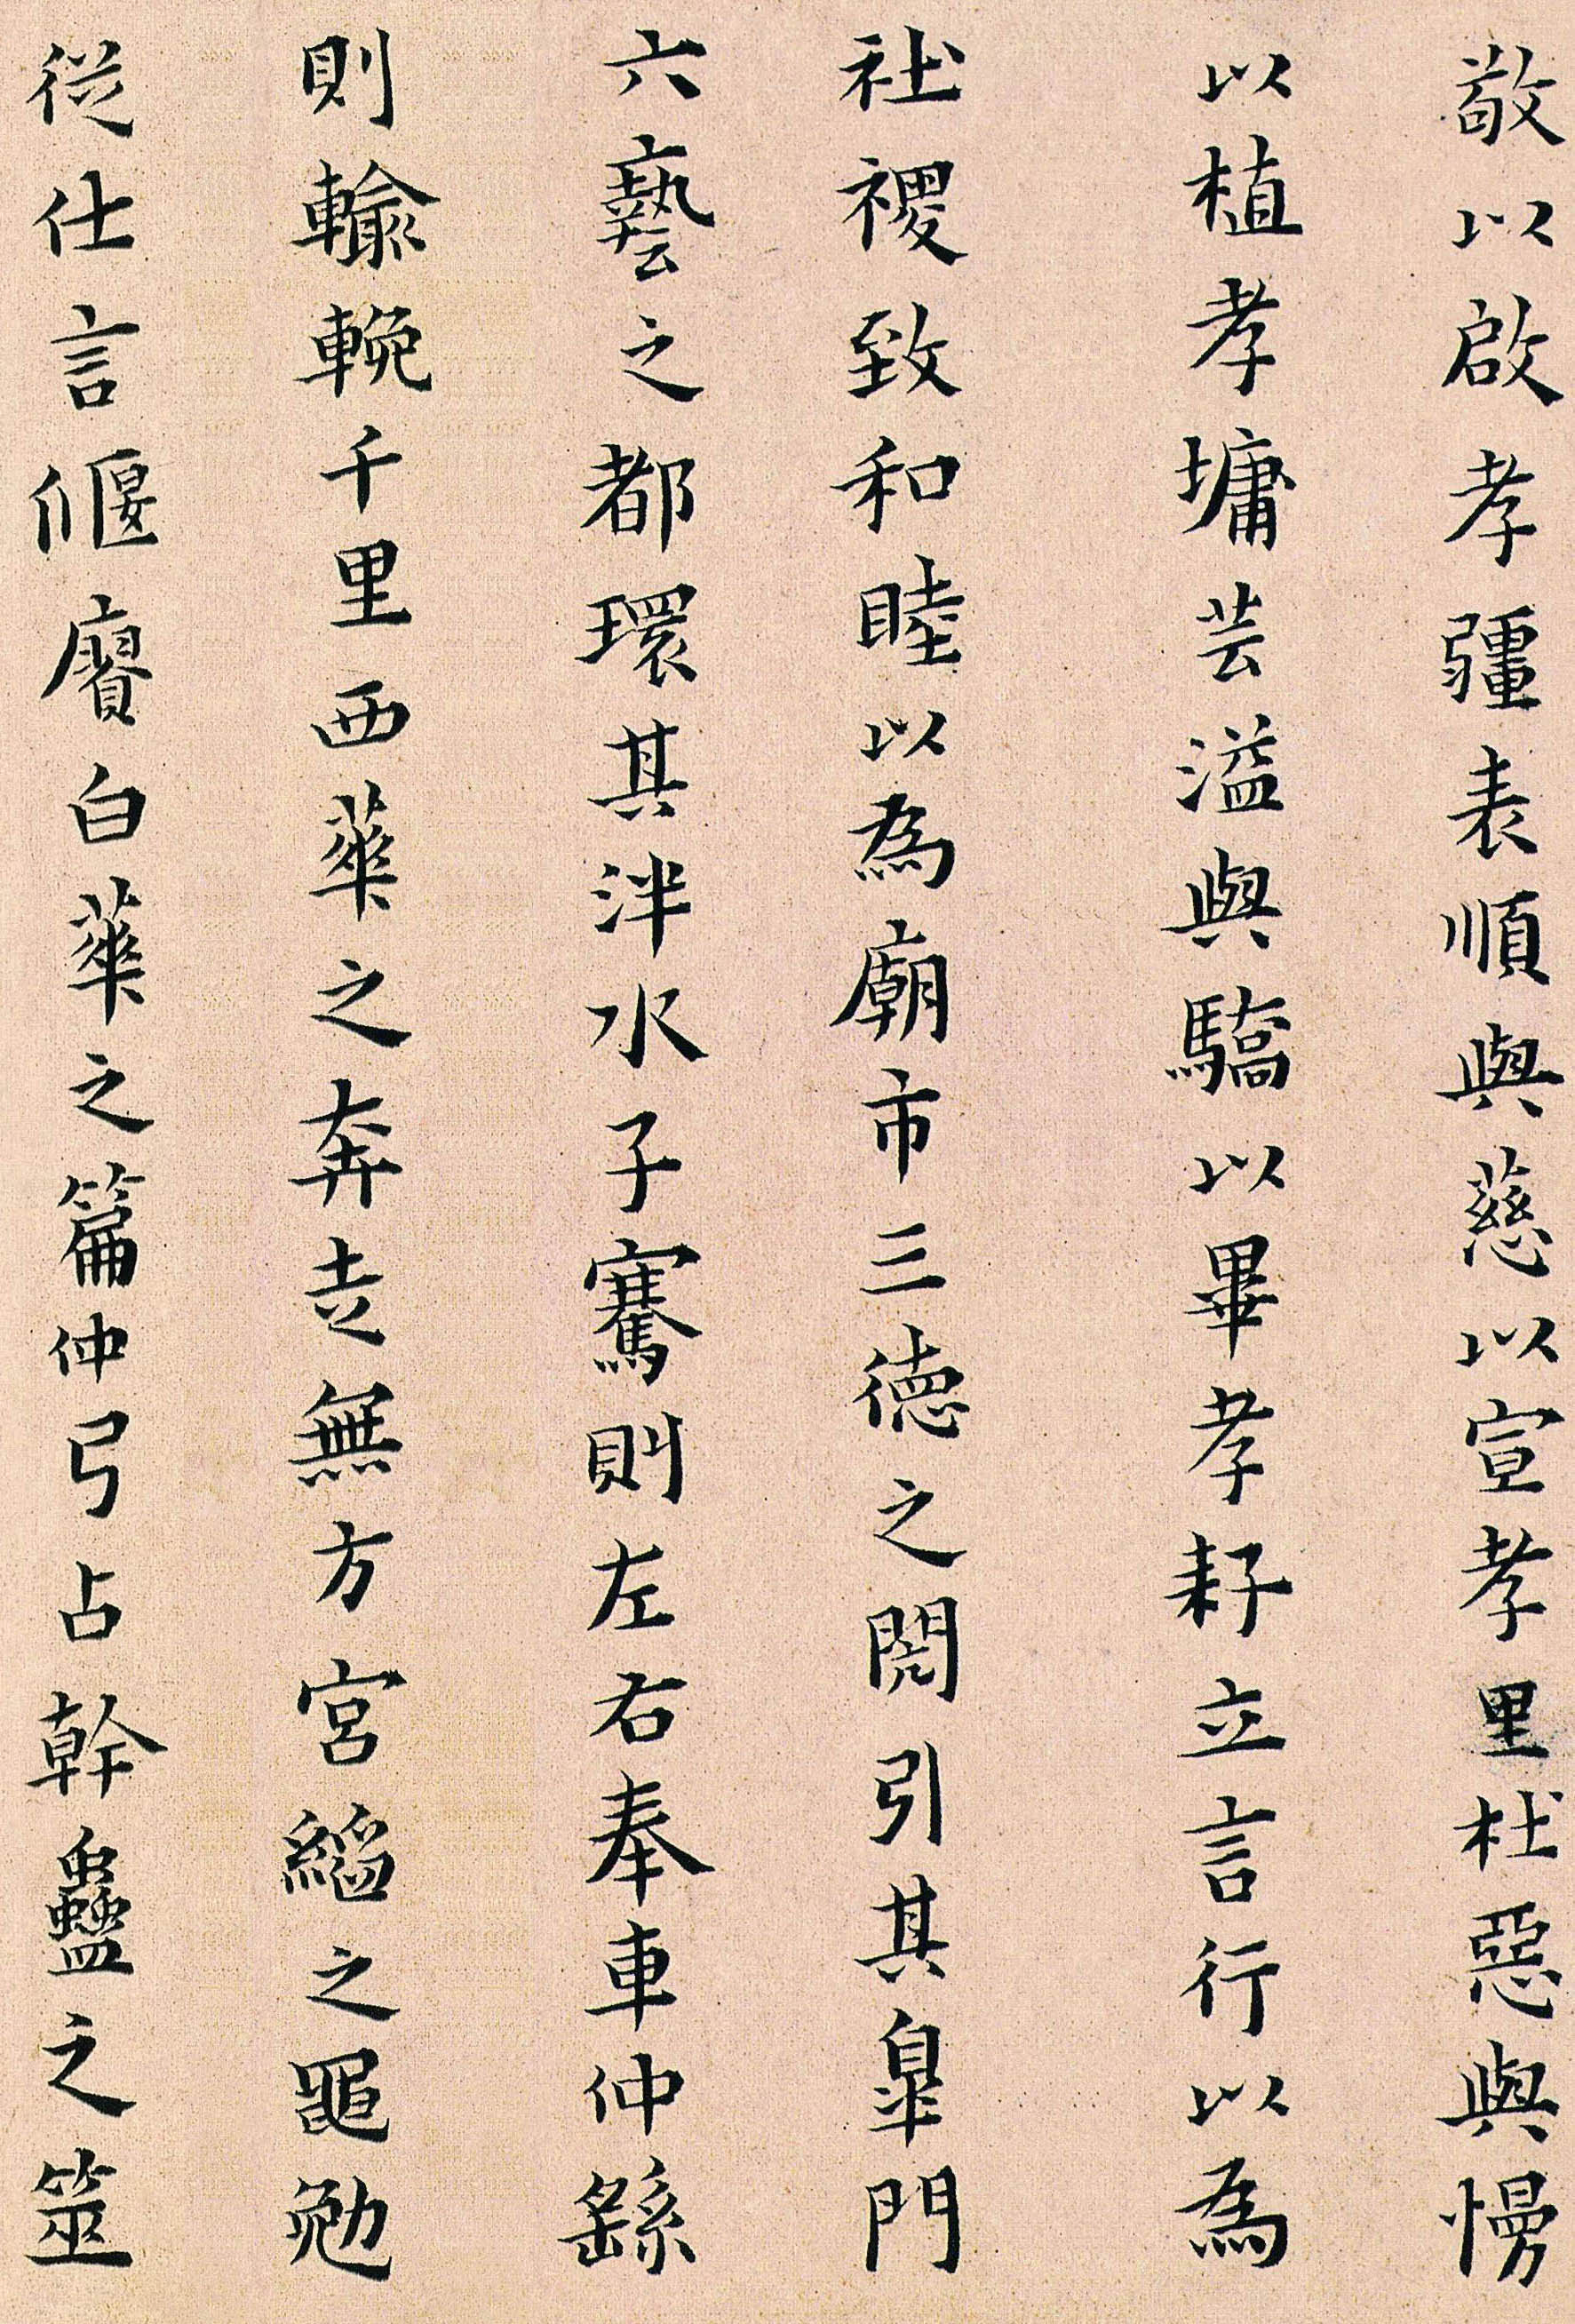 敬以啟孝疆表順與慈以宣孝里杜惡與慢
以植孝墉芸溢與驕以畢孝耔立言行以為
社禝致和睦以為廟市三德之閎引其皐門
六藝之都環其泮水子騫則左右奉車仲繇
則輸輓千里西華之奔走無方宮縚之黽勉
從仕言偃賡白華之篇仲弓占幹蠱之筮